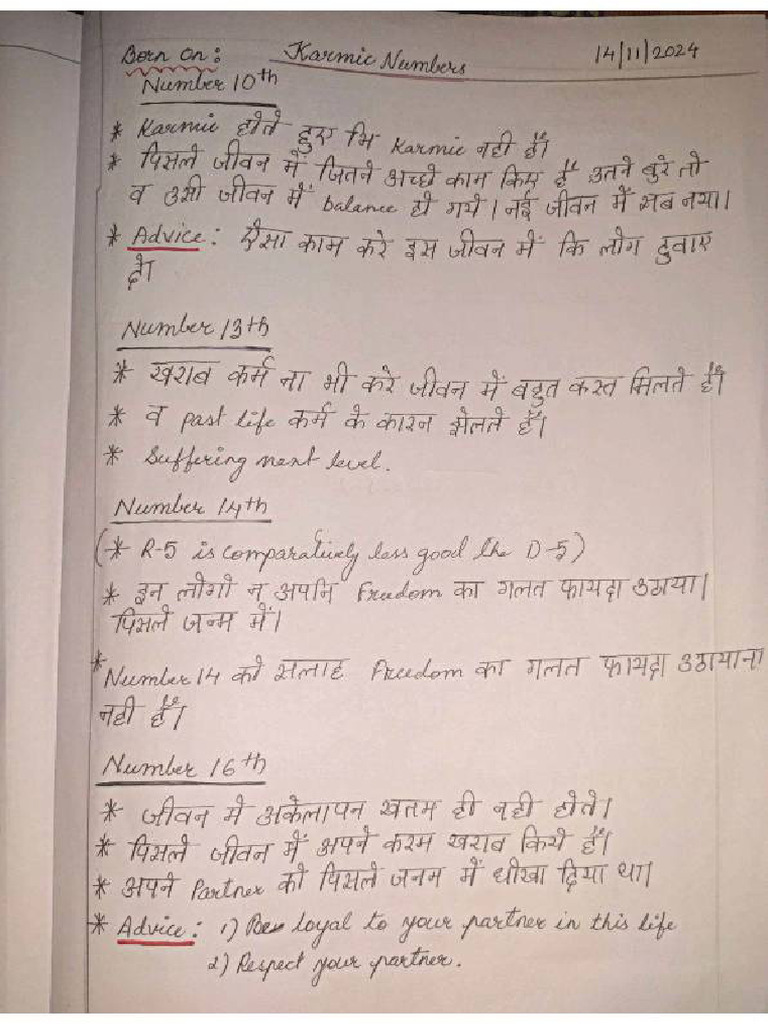 Born on: Karmic Numbers 14/11/2024
Number 10th
* Karmic होते हुए भि Karmic नही हैं।
* पिसले जीवन में जितने अच्छे काम किए हैं उतने बुरे तो
व उसी जीवन में balance हो गये। नई जीवन में सब नया।
* Advice: ऐसा काम करे इस जीवन में कि लोग दुवाए
दे।
Number 13th
* खराब कर्म ना भी करे जीवन में बहुत कस्त मिलते हैं।
* व past life कर्म के कारन झेलते हैं।
* Suffering next level.
Number 14th
(* R-5 is comparatively less good the D-5)
* इन लोगो न अपनि Freedom का गलत फायदा उठाया।
पिसले जन्म में।
* Number 14 को सलाह Freedom का गलत फायदा उठायाना
नही हैं।
Number 16th
* जीवन मे अकेलापन खतम ही नही होते।
* पिसले जीवन में अपने करम खराब किये हैं।
* अपने Partner को पिसले जनम में धोखा दिया था।
* Advice: 1) Be loyal to your partner in this life
2) Respect your partner.